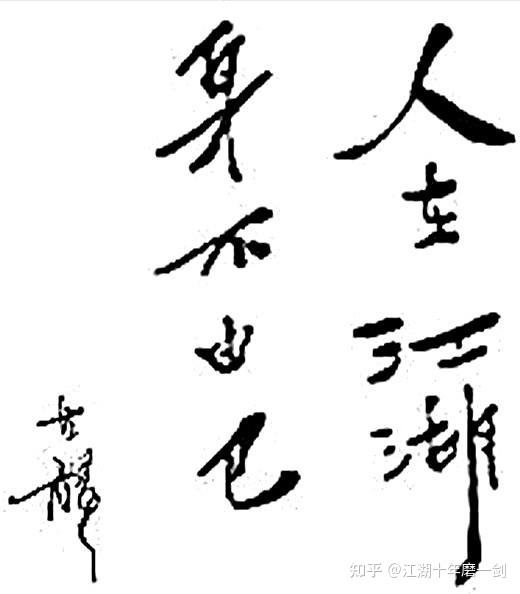 人在江湖
身不由己
古龍
知乎 @江湖十年磨一剑